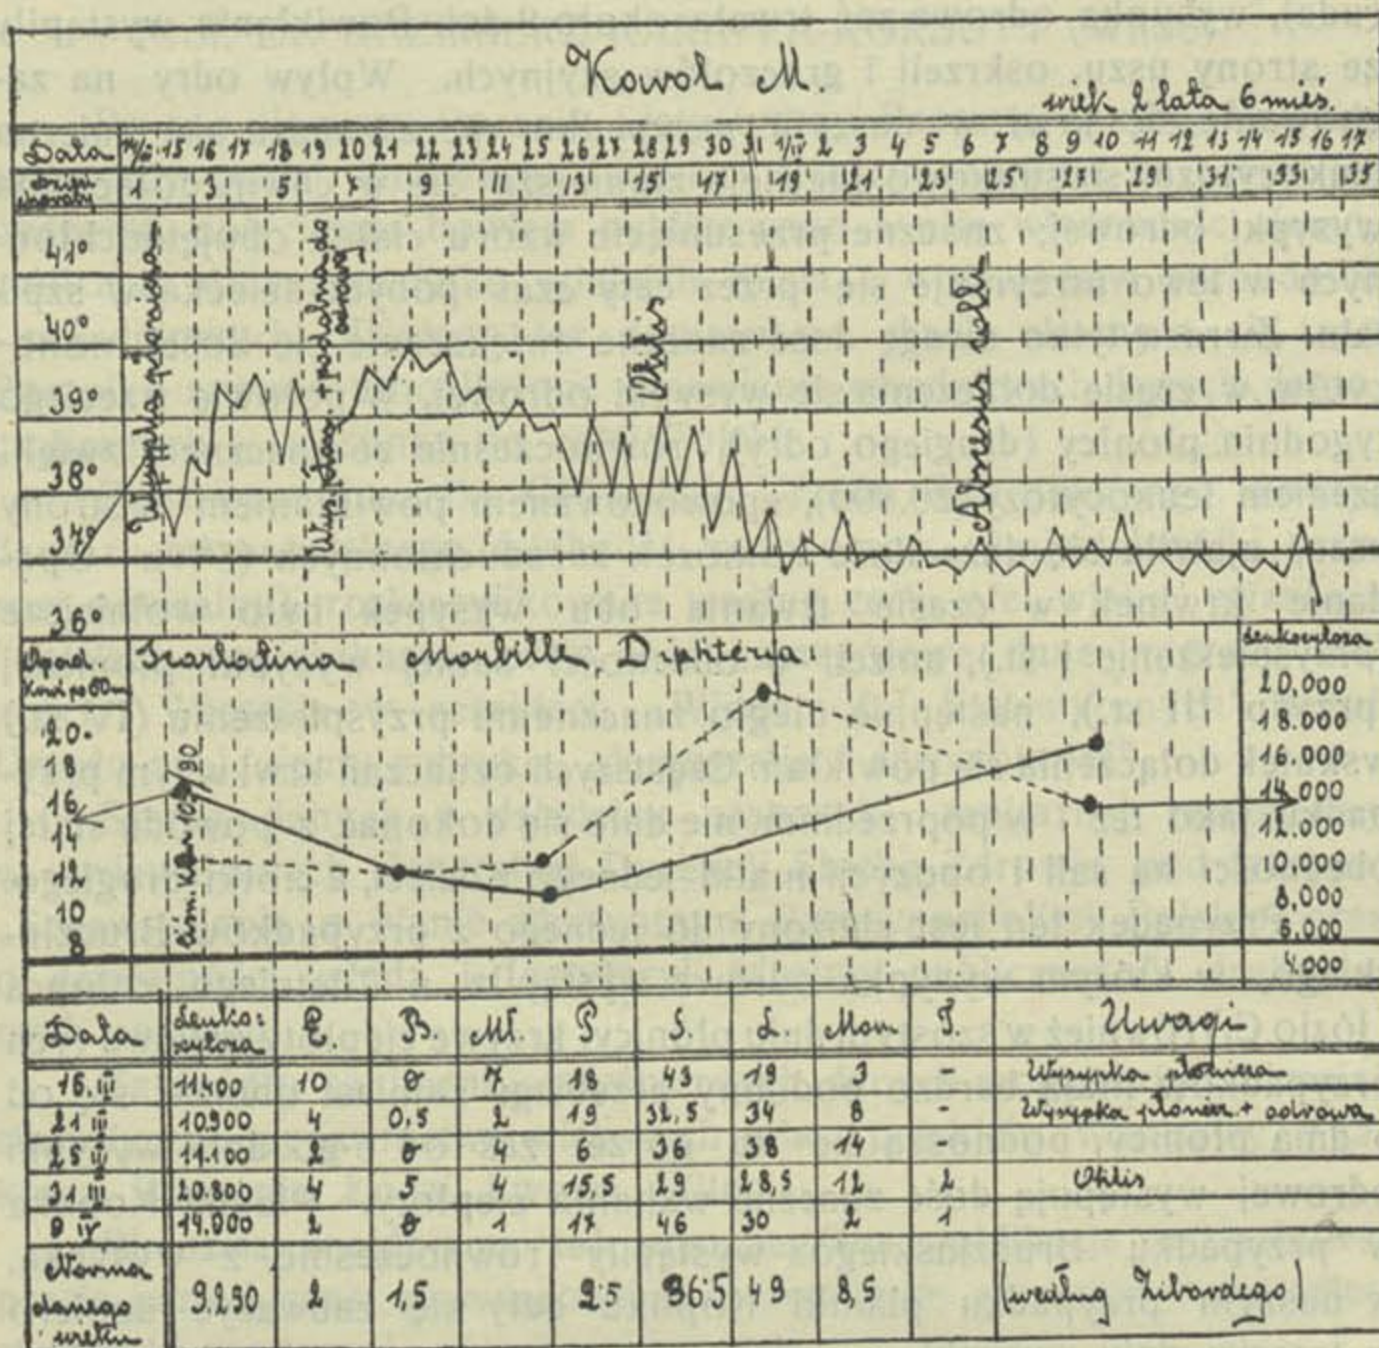 Kowol M.
wiek 2 lata 6 mieś.
Data 14/III 15 16 17 18 19 20 21 22 23 24 25 26 27 28 29 30 31 1/IV 2 3 4 5 6 7 8 9 10 11 12 13 14 15 16 17
dzień choroby 1 3 5 7 9 11 13 15 17 19 21 23 25 27 29 31 33 35
41°
40°
39°
38°
37°
36°
Wysypka płonicza
Wysyp. płon. + podobna do odrowej
Otitis
Abscessus colli
Opad. Krwi po 60m
Scarlatina Morbilli, Diphteria
Leukocytoza
20.
18
16
14
12
10
8
Ciśn. krwi 105/90
20.000
18.000
16.000
14.000
12.000
10.000
8.000
6.000
4.000
Data Leuko: cytoza E. B. Mł. P S. L. Mon T. Uwagi
16.III 11400 10 0 7 18 43 19 3 - Wysypka płonicza
21 III 10900 4 0,5 2 19 32,5 34 8 - Wysypka płonicz + odrowa
25 III 11.100 2 0 4 6 36 38 14 -
31 III 20.800 4 5 4 15,5 29 28,5 12 2 Otitis
9 IV 14.000 2 0 1 17 46 30 2 1
Norma danego wieku 9.290 2 1,5 2.5 36.5 49 8,5 (według Zibordego)